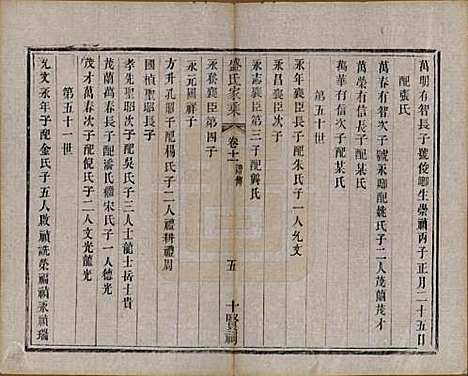 萬明有智長子號俊卿生崇禎丙子正月二十五日
配張氏
萬春有智次子號永卿配姚氏子二人茂蘭茂才
萬榮有信長子配某氏
萬華有信次子配某氏
第五十世
永年襄臣長子配朱氏子一人允文
永昌襄臣次子
永志襄臣第三子配龔氏
永泰襄臣第四子
永元國祥子
盛氏家乘
卷十一
五
十賢祠
方升孔聊子配楊氏子二人禮耕禮周
國楨聖聊長子
孝先聖聊次子配吳氏子三人士龍士岳士貴
茂蘭萬春長子配潘氏繼宋氏子一人德光
茂才萬春次子配倪氏子二人文光龍光
第五十一世
允文永年子配金氏子五人啟禎誥榮福禎永禎瑞